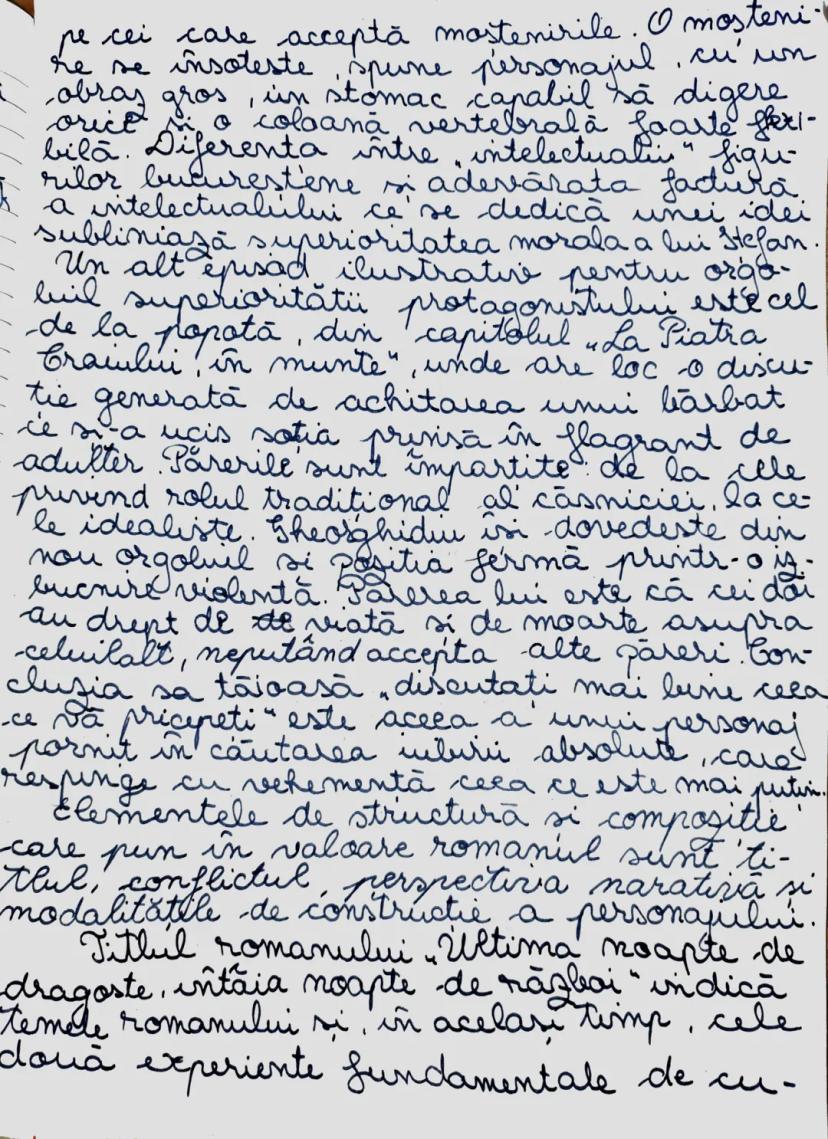 pe cei care acceptă moștenirile. O moșteni-
re se însoțește, spune personajul, cu un
obraz gros, un stomac capabil să digere
orice și o coloană vertebrală foarte flexi-
bilă. Diferența între „intelectualii" figu-
rilor bucureștene și adevărata factură
a intelectualului ce se dedică unei idei
subliniază superioritatea morala a lui Ștefan.
Un alt episod ilustrativ pentru orgo-
liul superiorității protagonistului este cel
de la popotă, din capitolul „La Piatra
Craiului, în munte", unde are loc o discu-
ție generată de achitarea unui bărbat
ce și-a ucis soția prinsă în flagrant de
adulter. Părerile sunt împărțite: de la cele
privind rolul tradițional al căsniciei, la ce-
le idealiste. Gheorghidiu își dovedește din
nou orgoliul și poziția fermă printr-o iz-
bucnire violentă. Părerea lui este că cei doi
au drept de de viață și de moarte asupra
celuilalt, neputând accepta alte păreri. Con-
cluzia sa tăioasă „discutați mai bine ceea
ce vă pricepeți" este aceea a unui personaj
pornit în căutarea iubirii absolute, care
respinge cu vehemență ceea ce este mai puțin.
Elementele de structură și compoziție
care pun în valoare romanul sunt ti-
tlul, conflictul, perspectiva narativă și
modalitățile de construcție a personajului.
Titlul romanului „Ultima noapte de
dragoste, întâia noapte de război" indică
temele romanului și, în același timp, cele
două experiențe fundamentale de cu-